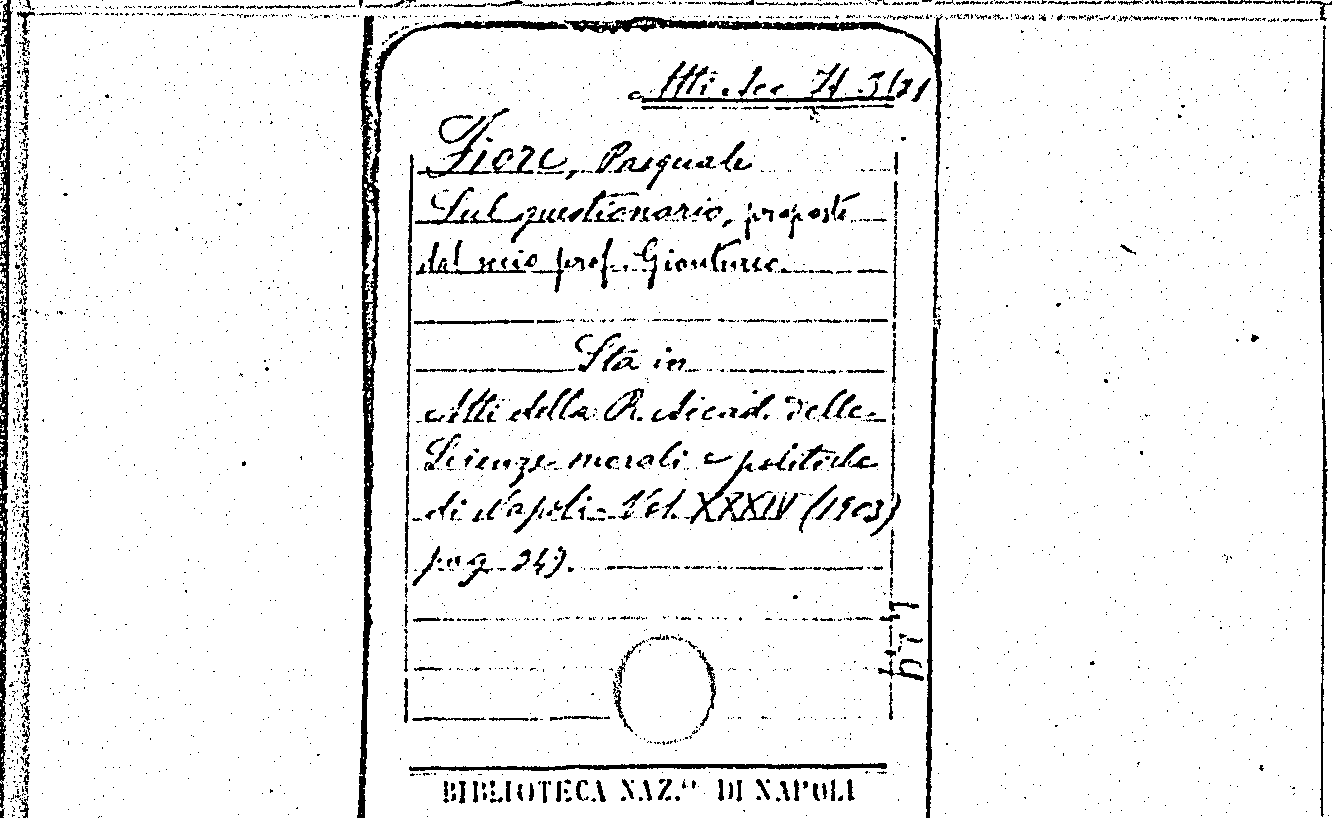 Atti Acc IV 3/21
Fiore, Pasquale
Sul questionario, proposto
dal socio prof. Gianturco.
Sta in
Atti della R. Accad. delle
Scienze morali e politiche
di Napoli - Vol. XXXIV (1903)
pag 247.
BIBLIOTECA NAZ.ᴸᴱ DI NAPOLI